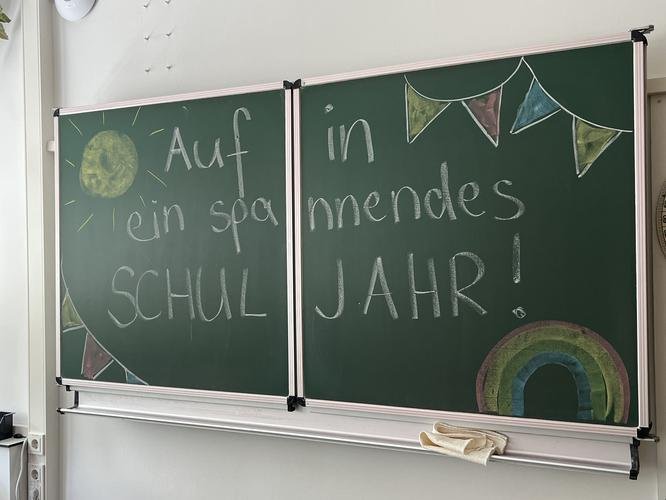 Auf in
ein spannendes
SCHUL JAHR!